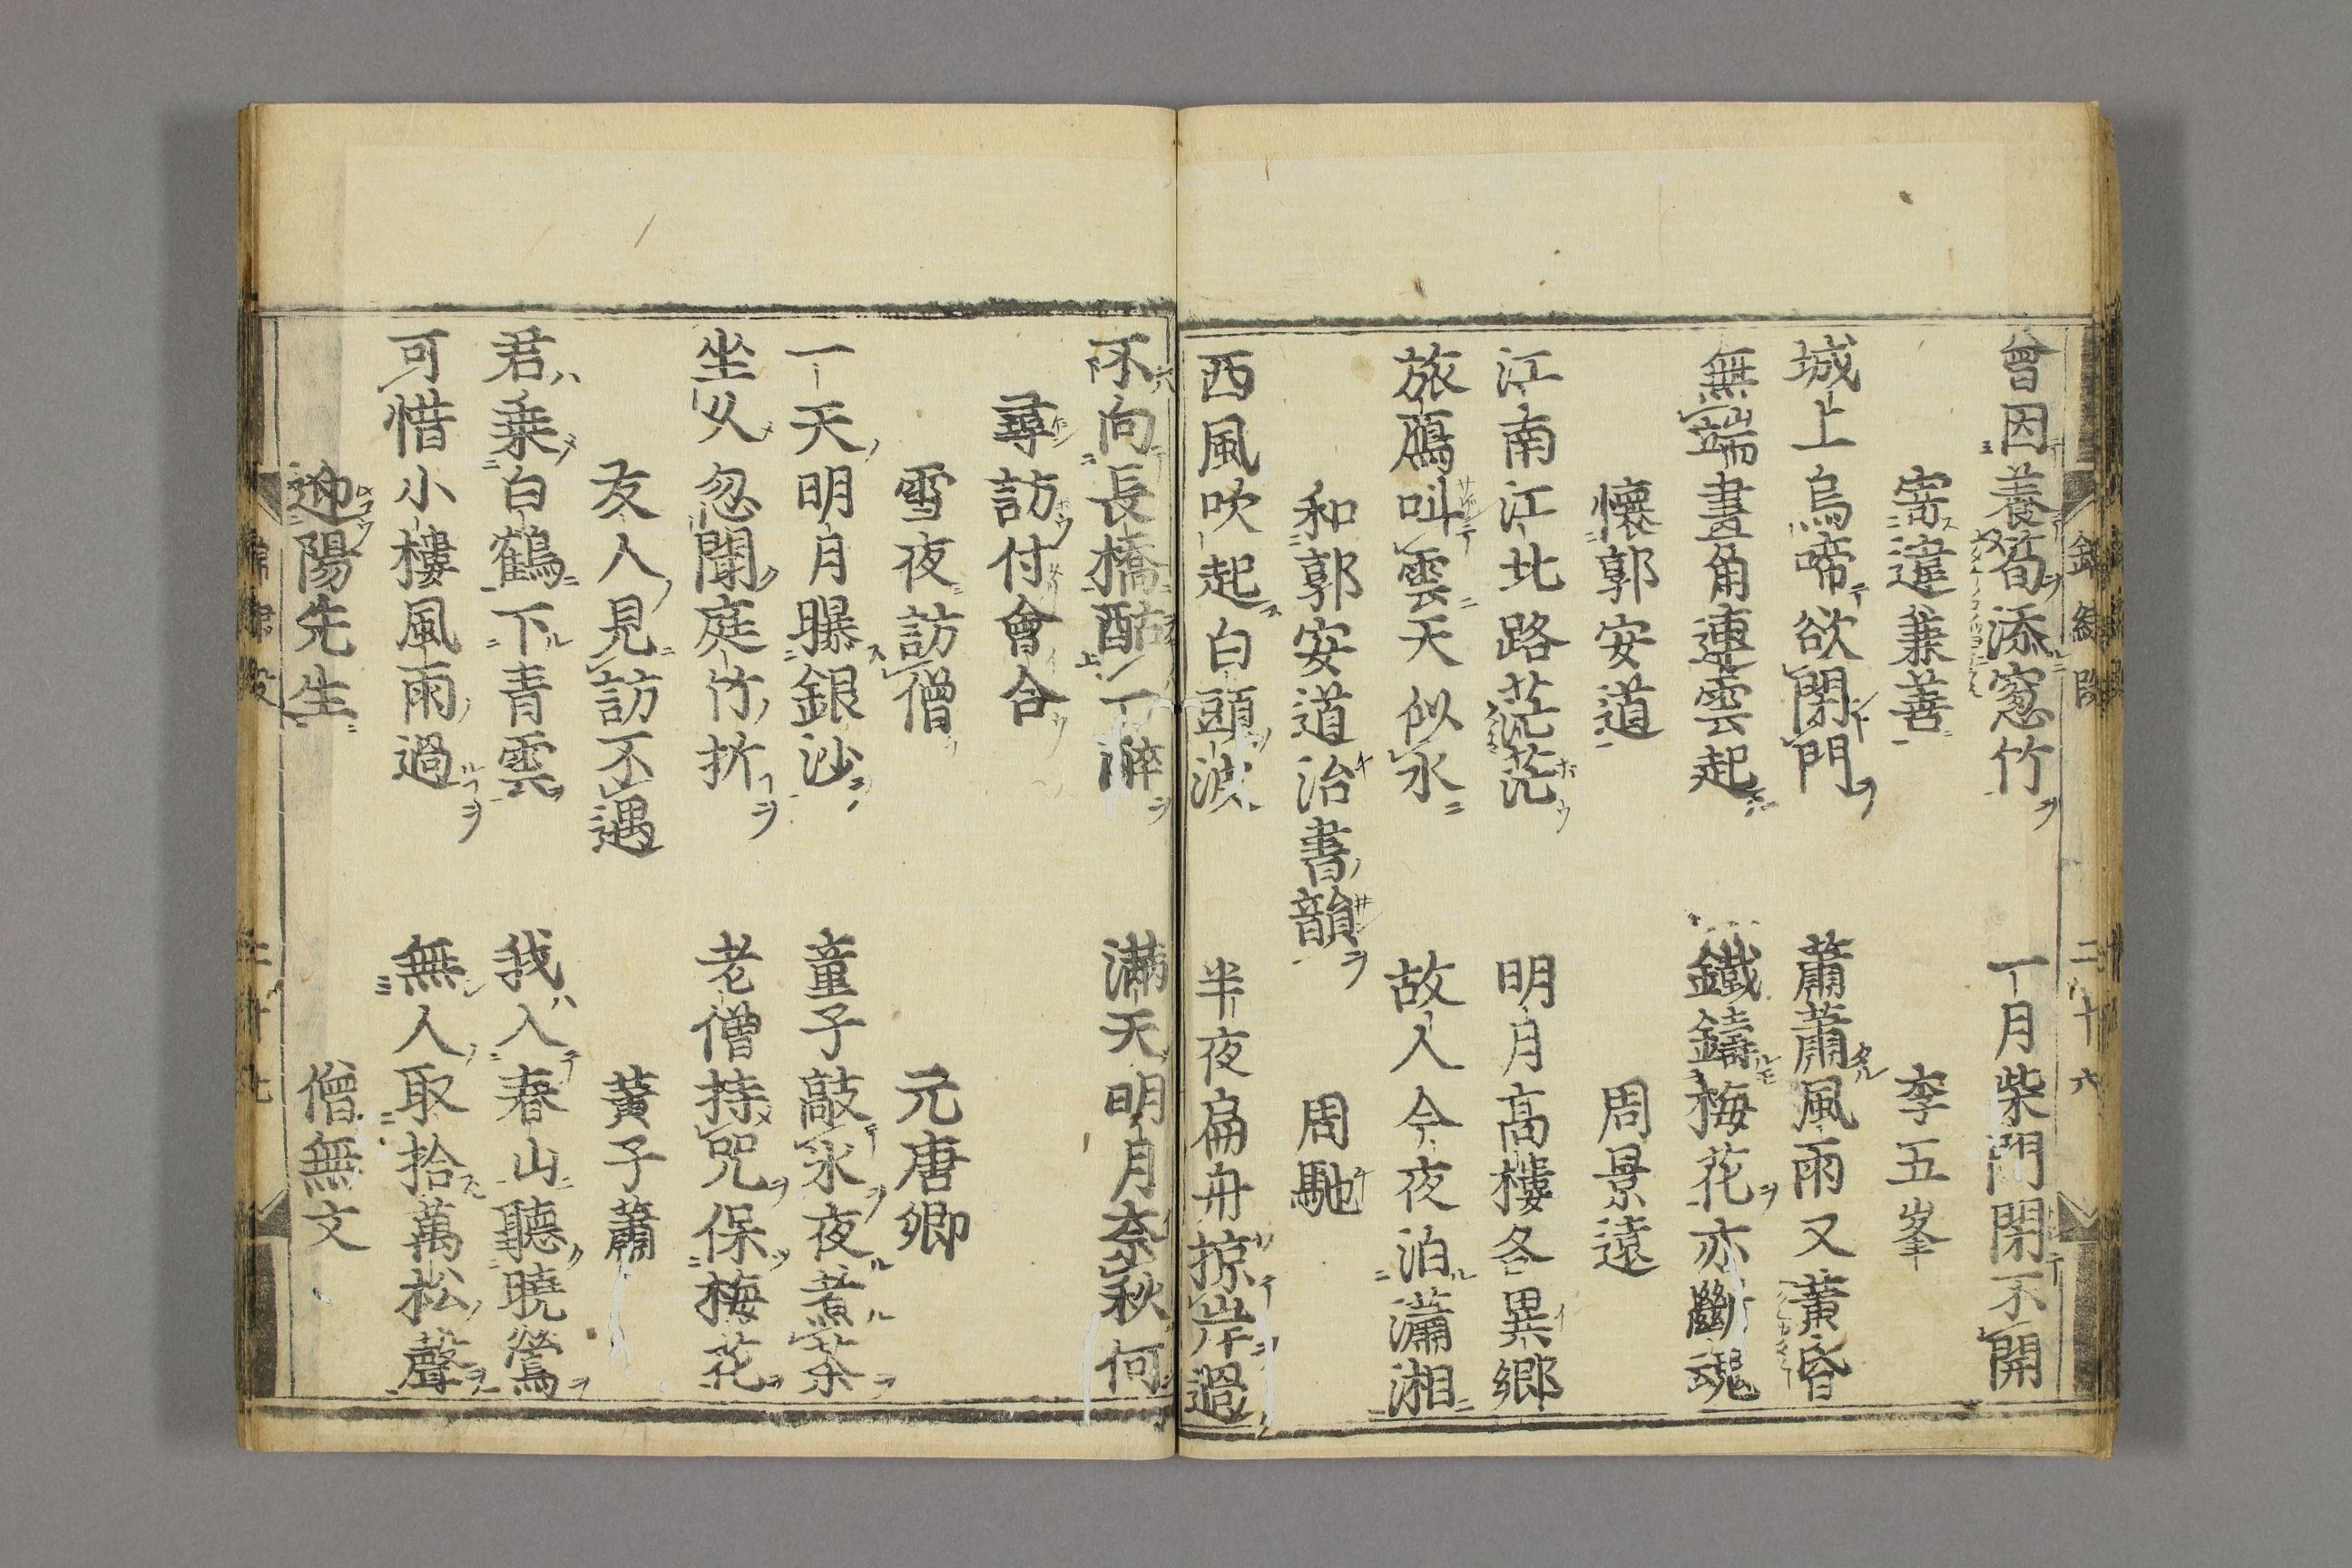 曾因養筍添窓竹 一月柴門閉不開
寄達兼善 李五峯
城上烏啼欲閉門 蕭蕭風雨又黄昏
無端畫角連雲起 鐵鑄梅花亦斷魂
懷郭安道 周景遠
江南江北路茫茫 明月高樓各異郷
旅鴈叫雲天似水 故人今夜泊瀟湘
和郭安道治書韻 周馳
西風吹起白頭波 半夜扁舟掠岸過
不向長橋酤一醉 満天明月奈秋何
尋訪付會合
雪夜訪僧 元唐卿
一天明月曝銀沙 童子敲氷夜煮茶
坐久忽聞庭竹折 老僧持咒保梅花
友人見訪不遇 黄子蕭
君乗白鶴下青雲 我入春山聽曉鶯
可惜小樓風雨過 無人取拾萬松聲
迎陽先生 僧無文
二十六